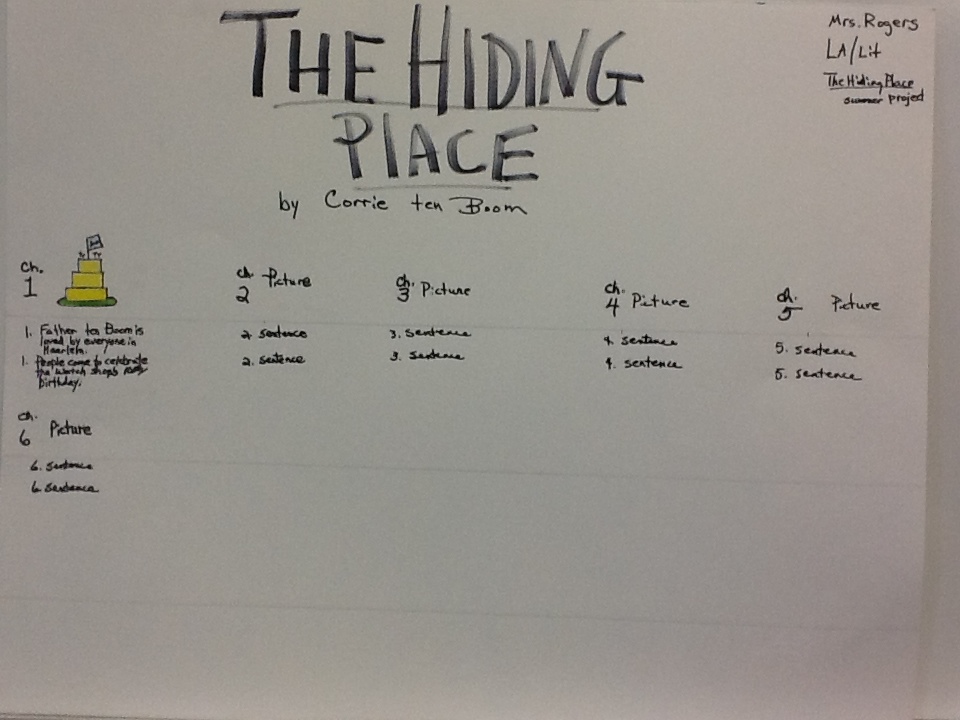 THE HIDING
PLACE
by Corrie ten Boom
Mrs. Rogers
LA/Lit
The Hiding Place
summer project
ch.
1
1. Father ten Boom is
loved by everyone in
Haarlem.
1. People come to celebrate
the watch shop's
birthday.
ch. Picture
2
2. sentence
2. sentence
ch. Picture
3
3. sentence
3. sentence
ch.
4 Picture
4. sentence
4. sentence
ch. Picture
5
5. sentence
5. sentence
ch.
6 Picture
6. sentence
6. sentence